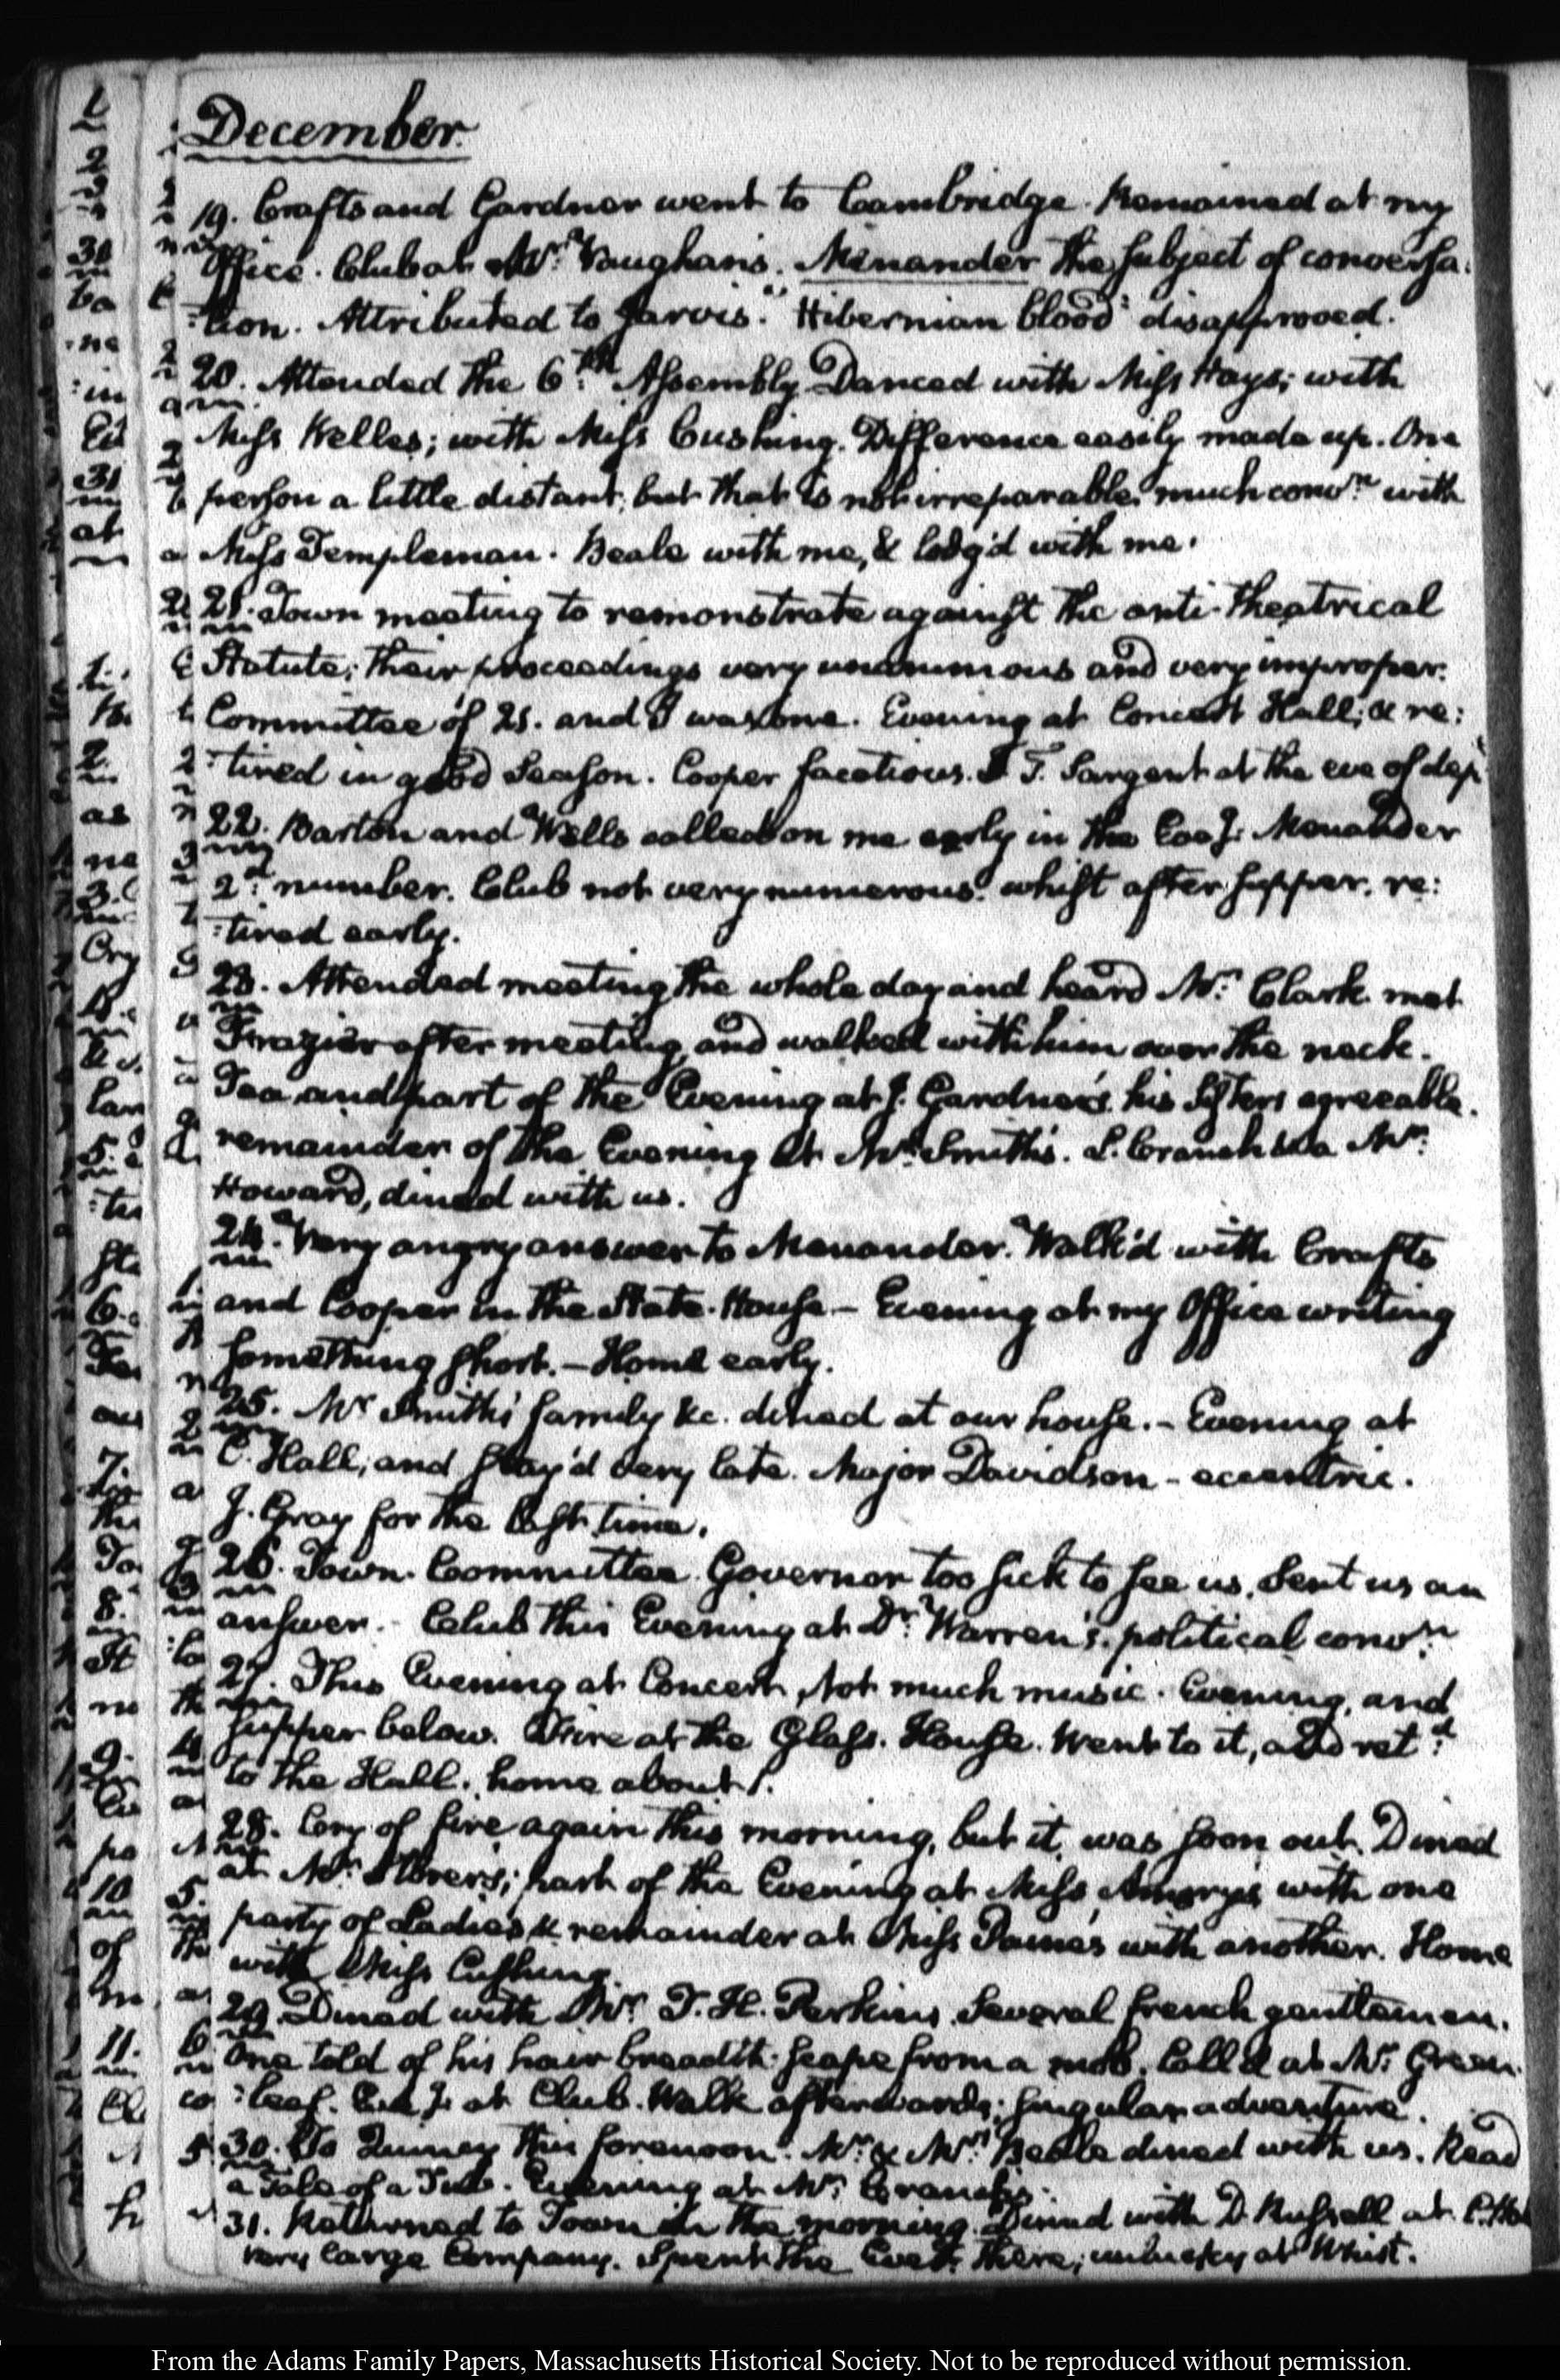 December.
19. Crafts and Gardner went to Cambridge. Remained at my
Office. Club at Mr: Vaughan's. Menander the subject of conversa:
:tion. Attributed to Jarvis. "Hibernian blood" disapproved.
20. Attended the 6th: Assembly Danced with Miss Hays; with
Miss Kelles; with Miss Cushing. Difference easily made up. One
person a little distant; but that is not irreparable. much convn: with
Miss Templeman. Beale with me, & lodg'd with me.
21. Town meeting to remonstrate against the anti-theatrical
Statute; their proceedings very unanimous and very improper.
Committee of 21. and I was one. Evening at Concert Hall; & re:
:tired in good Season. Cooper facetious. T. Sargent at the eve of dep
22. Barton and Wells called on me early in the Eveg: Menander
2d: number. Club not very numerous. whist after supper. re:
:tired early.
23. Attended meeting the whole day and heard Mr: Clark. met
Frazier after meeting, and walked with him over the neck.
Tea and part of the Evening at J. Gardner's. his Sisters agreeable.
remainder of the Evening at Mr: Smith's. L. Cranch & a Mr:
Howard, dined with us.
24. Very angry answer to Menander. Walk'd with Crafts
and Cooper in the State-House — Evening at my Office writing
something short. — Home early.
25. Mr Smith's family &c. dined at our house. — Evening at
C. Hall; and stay'd very late. Major Davidson - eccentric.
J. Gray for the last time.
26. Town-Committee. Governor too sick to see us. Sent us an
answer. Club this Evening at Dr: Warren's. political convn:
27. This Evening at Concert, Not much music. Evening, and
supper below. Fire at the Glass-House. Went to it, and retd:
to the Hall. home about 1.
28. Cry of fire again this morning, but it was soon out. Dined
at Mr: Storer's; part of the Evening at Miss Amory's with one
party of Ladies & remainder at Miss Paine's with another. Home
with Miss Cushing.
29. Dined with Mr: T. H. Perkins. Several french gentlemen.
One told of his hair breadth scape from a mob. Call'd at Mr: Green
:leaf. Eveg: at Club. Walk afterwards; singular adventure.
30. To Quincy this forenoon. Mr: & Mrs: Beale dined with us. Read
a Tale of a Tub. Evening at Mr: Cranch's.
31. Returned to Town in the morning. Dined with D. Russell at C. Ha
very large Company. Spent the Eveg: there; unlucky at Whist.
From the Adams Family Papers, Massachusetts Historical Society. Not to be reproduced without permission.